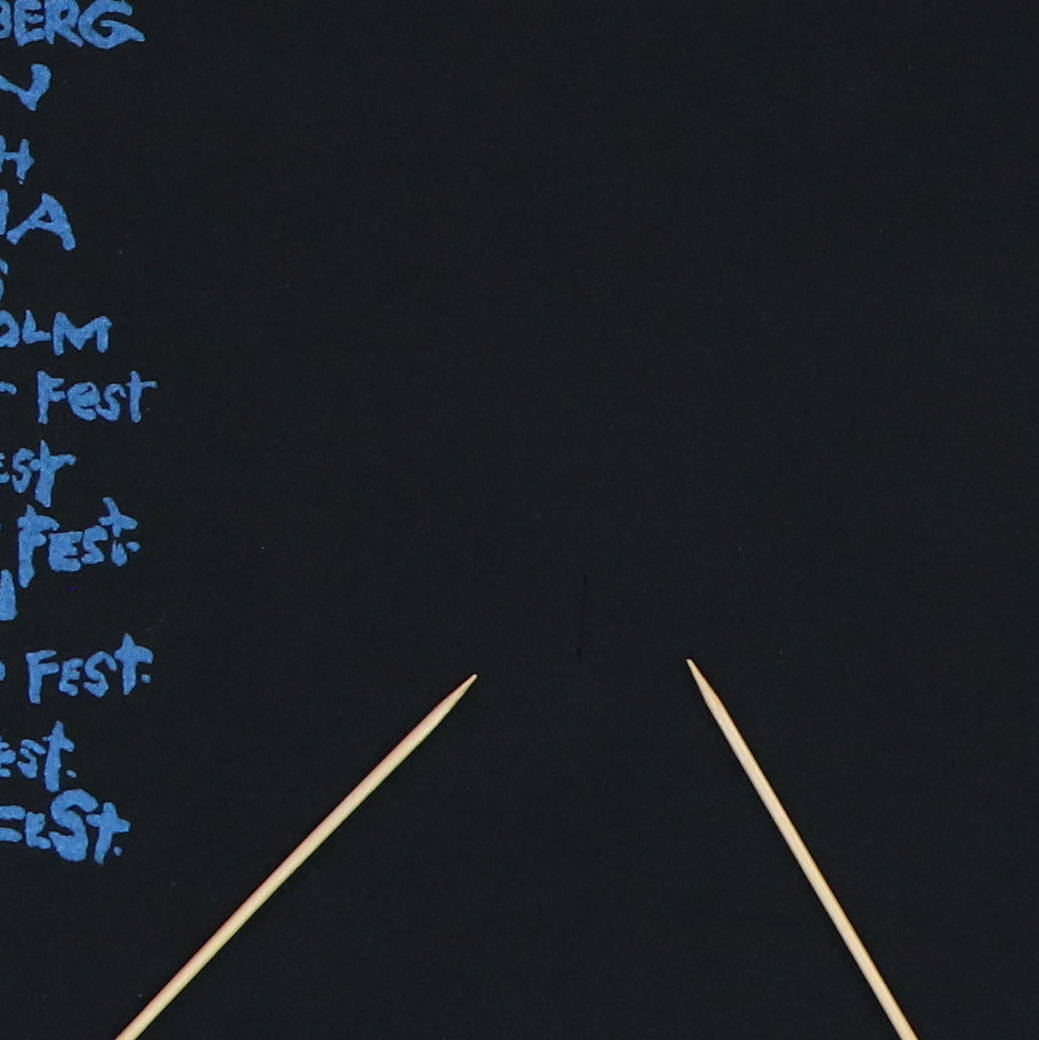 BERG
N
H
IA
S
OLM
Fest
est
FEST.
FEST.
est.
FEST.